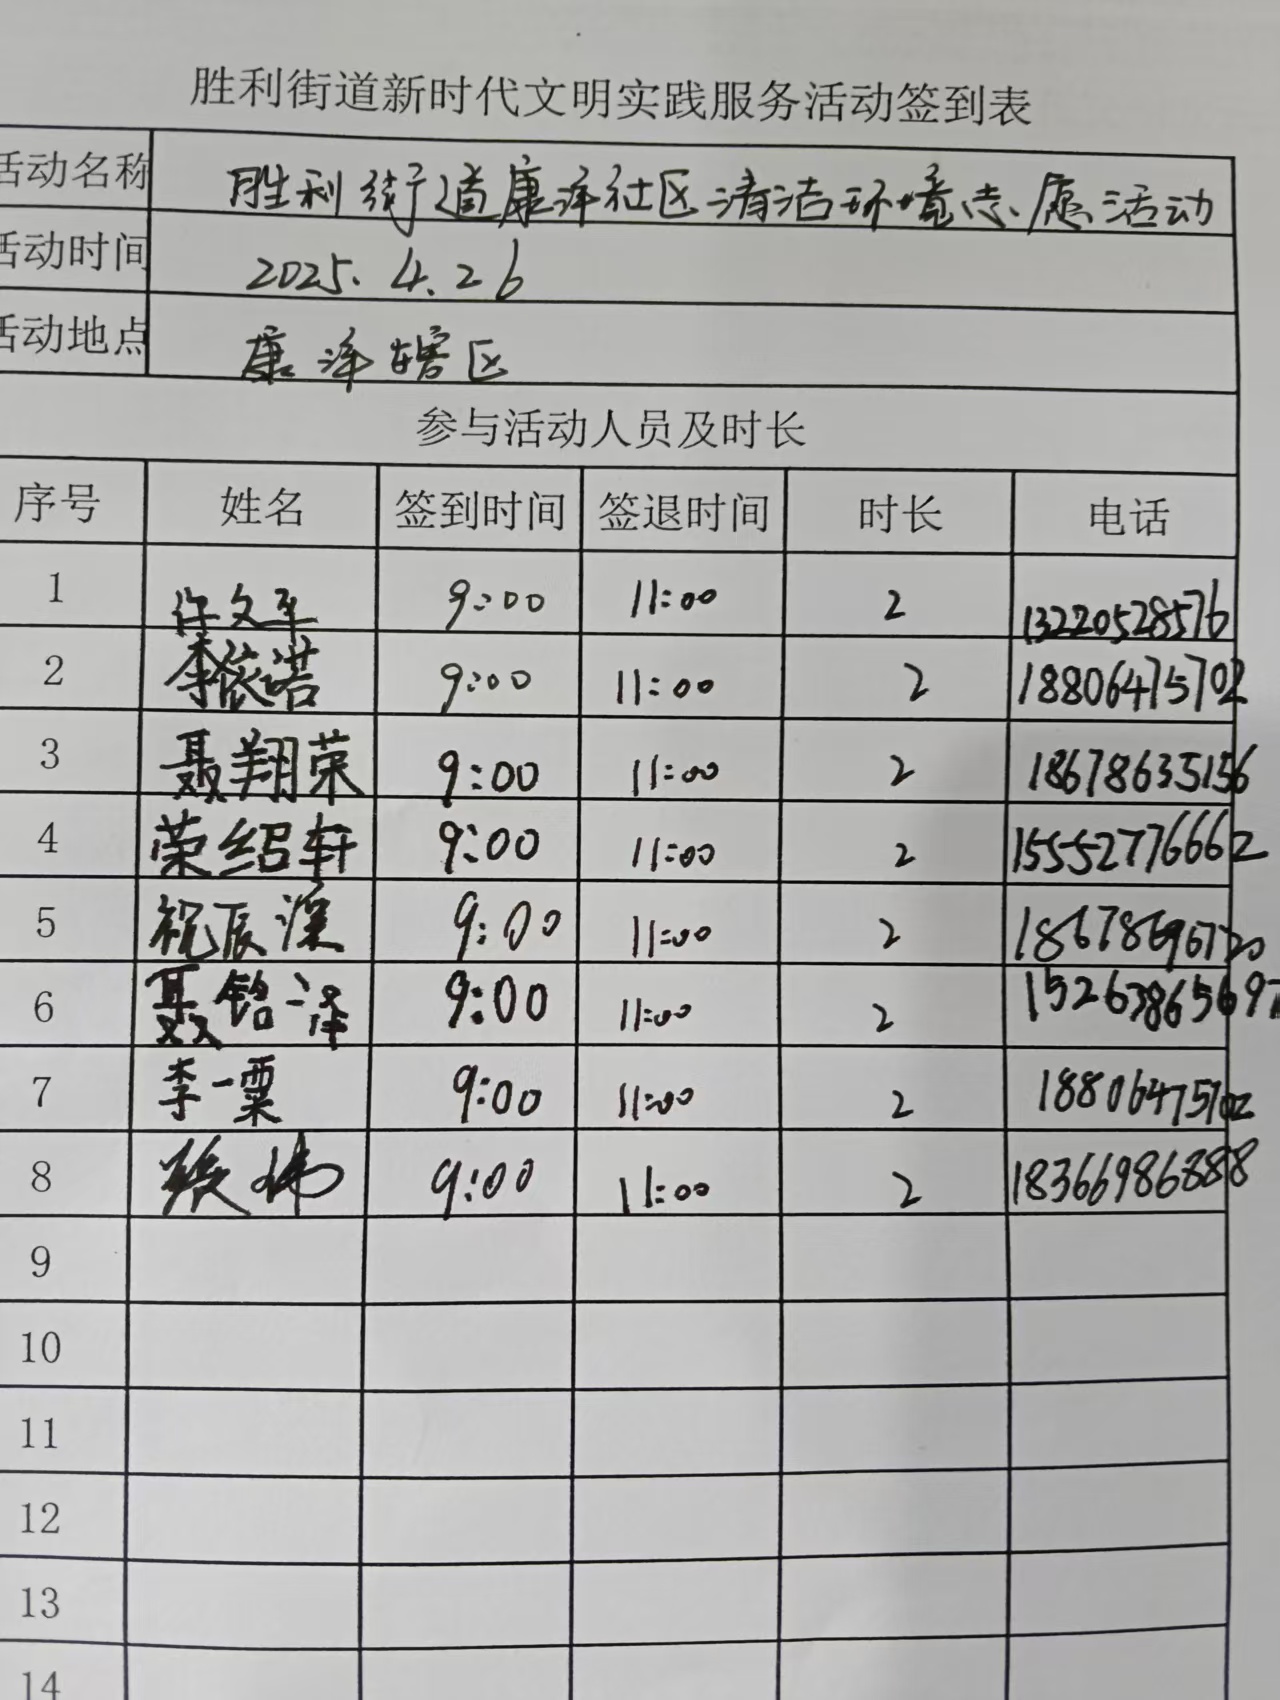 胜利街道新时代文明实践服务活动签到表
活动名称 胜利街道康泽社区清洁环境志愿活动
活动时间 2025.4.26
活动地点 康泽辖区
参与活动人员及时长
序号 姓名 签到时间 签退时间 时长 电话
1 许文平 9:00 11:00 2 13220528576
2 李依诺 9:00 11:00 2 18806475702
3 聂翔荣 9:00 11:00 2 18678635156
4 荣绍轩 9:00 11:00 2 15552776662
5 祝辰深 9:00 11:00 2 18678696720
6 聂铭泽 9:00 11:00 2 15263865697
7 李一粟 9:00 11:00 2 18806475702
8 张炜 9:00 11:00 2 18366986888
9
10
11
12
13
14